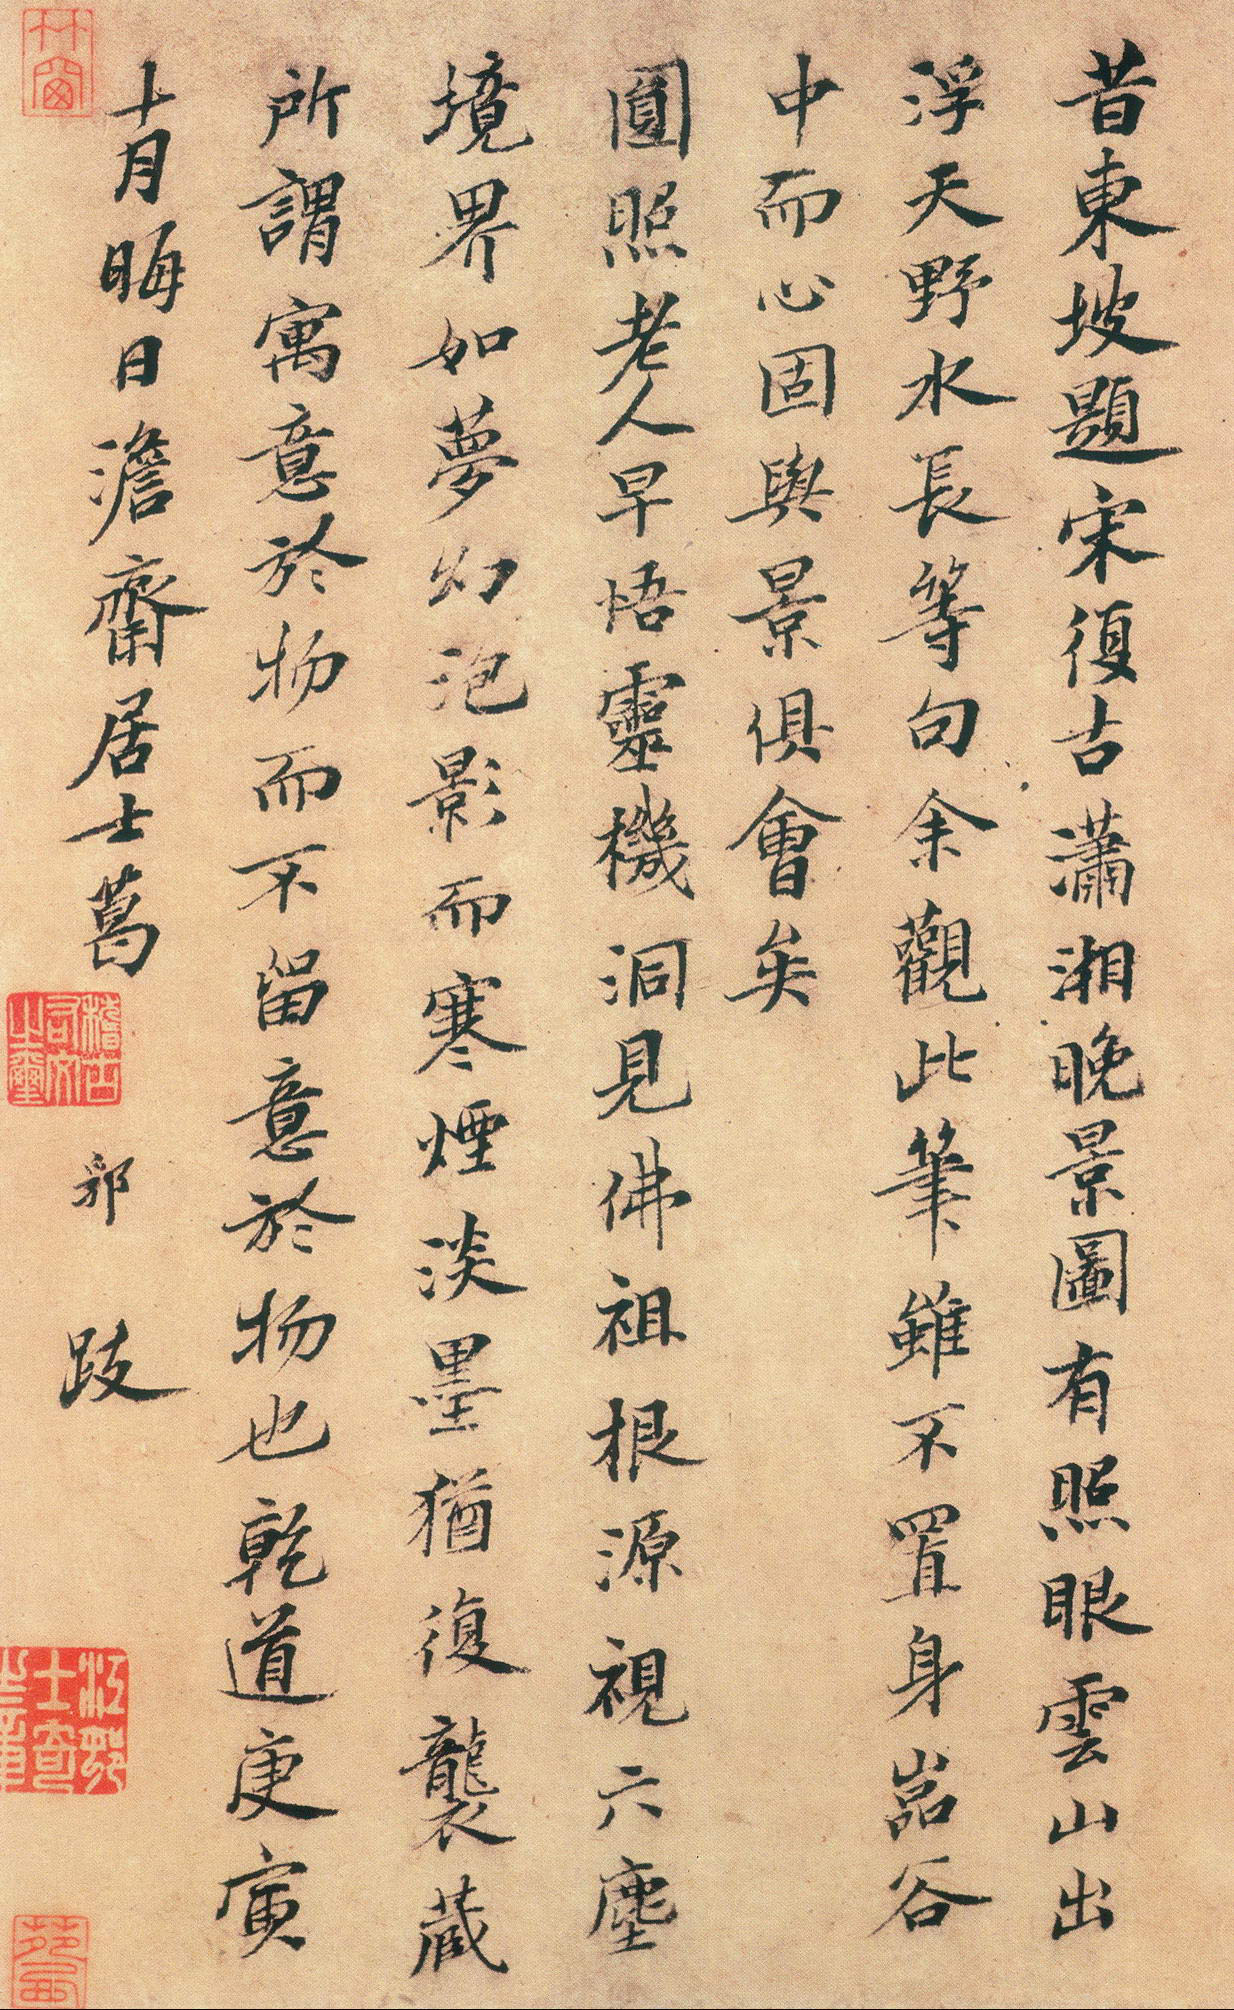 昔東坡題宋復古瀟湘晚景圖有照眼雲山出
浮天野水長等句余觀此筆雖不置身嵓谷
中而心固與景俱會矣
圓照老人早悟靈機洞見佛祖根源視六塵
境界如夢幻泡影而寒煙淡墨猶復襲藏
所謂寓意於物而不留意於物也乾道庚寅
十月晦日澹齋居士葛
郛
跋